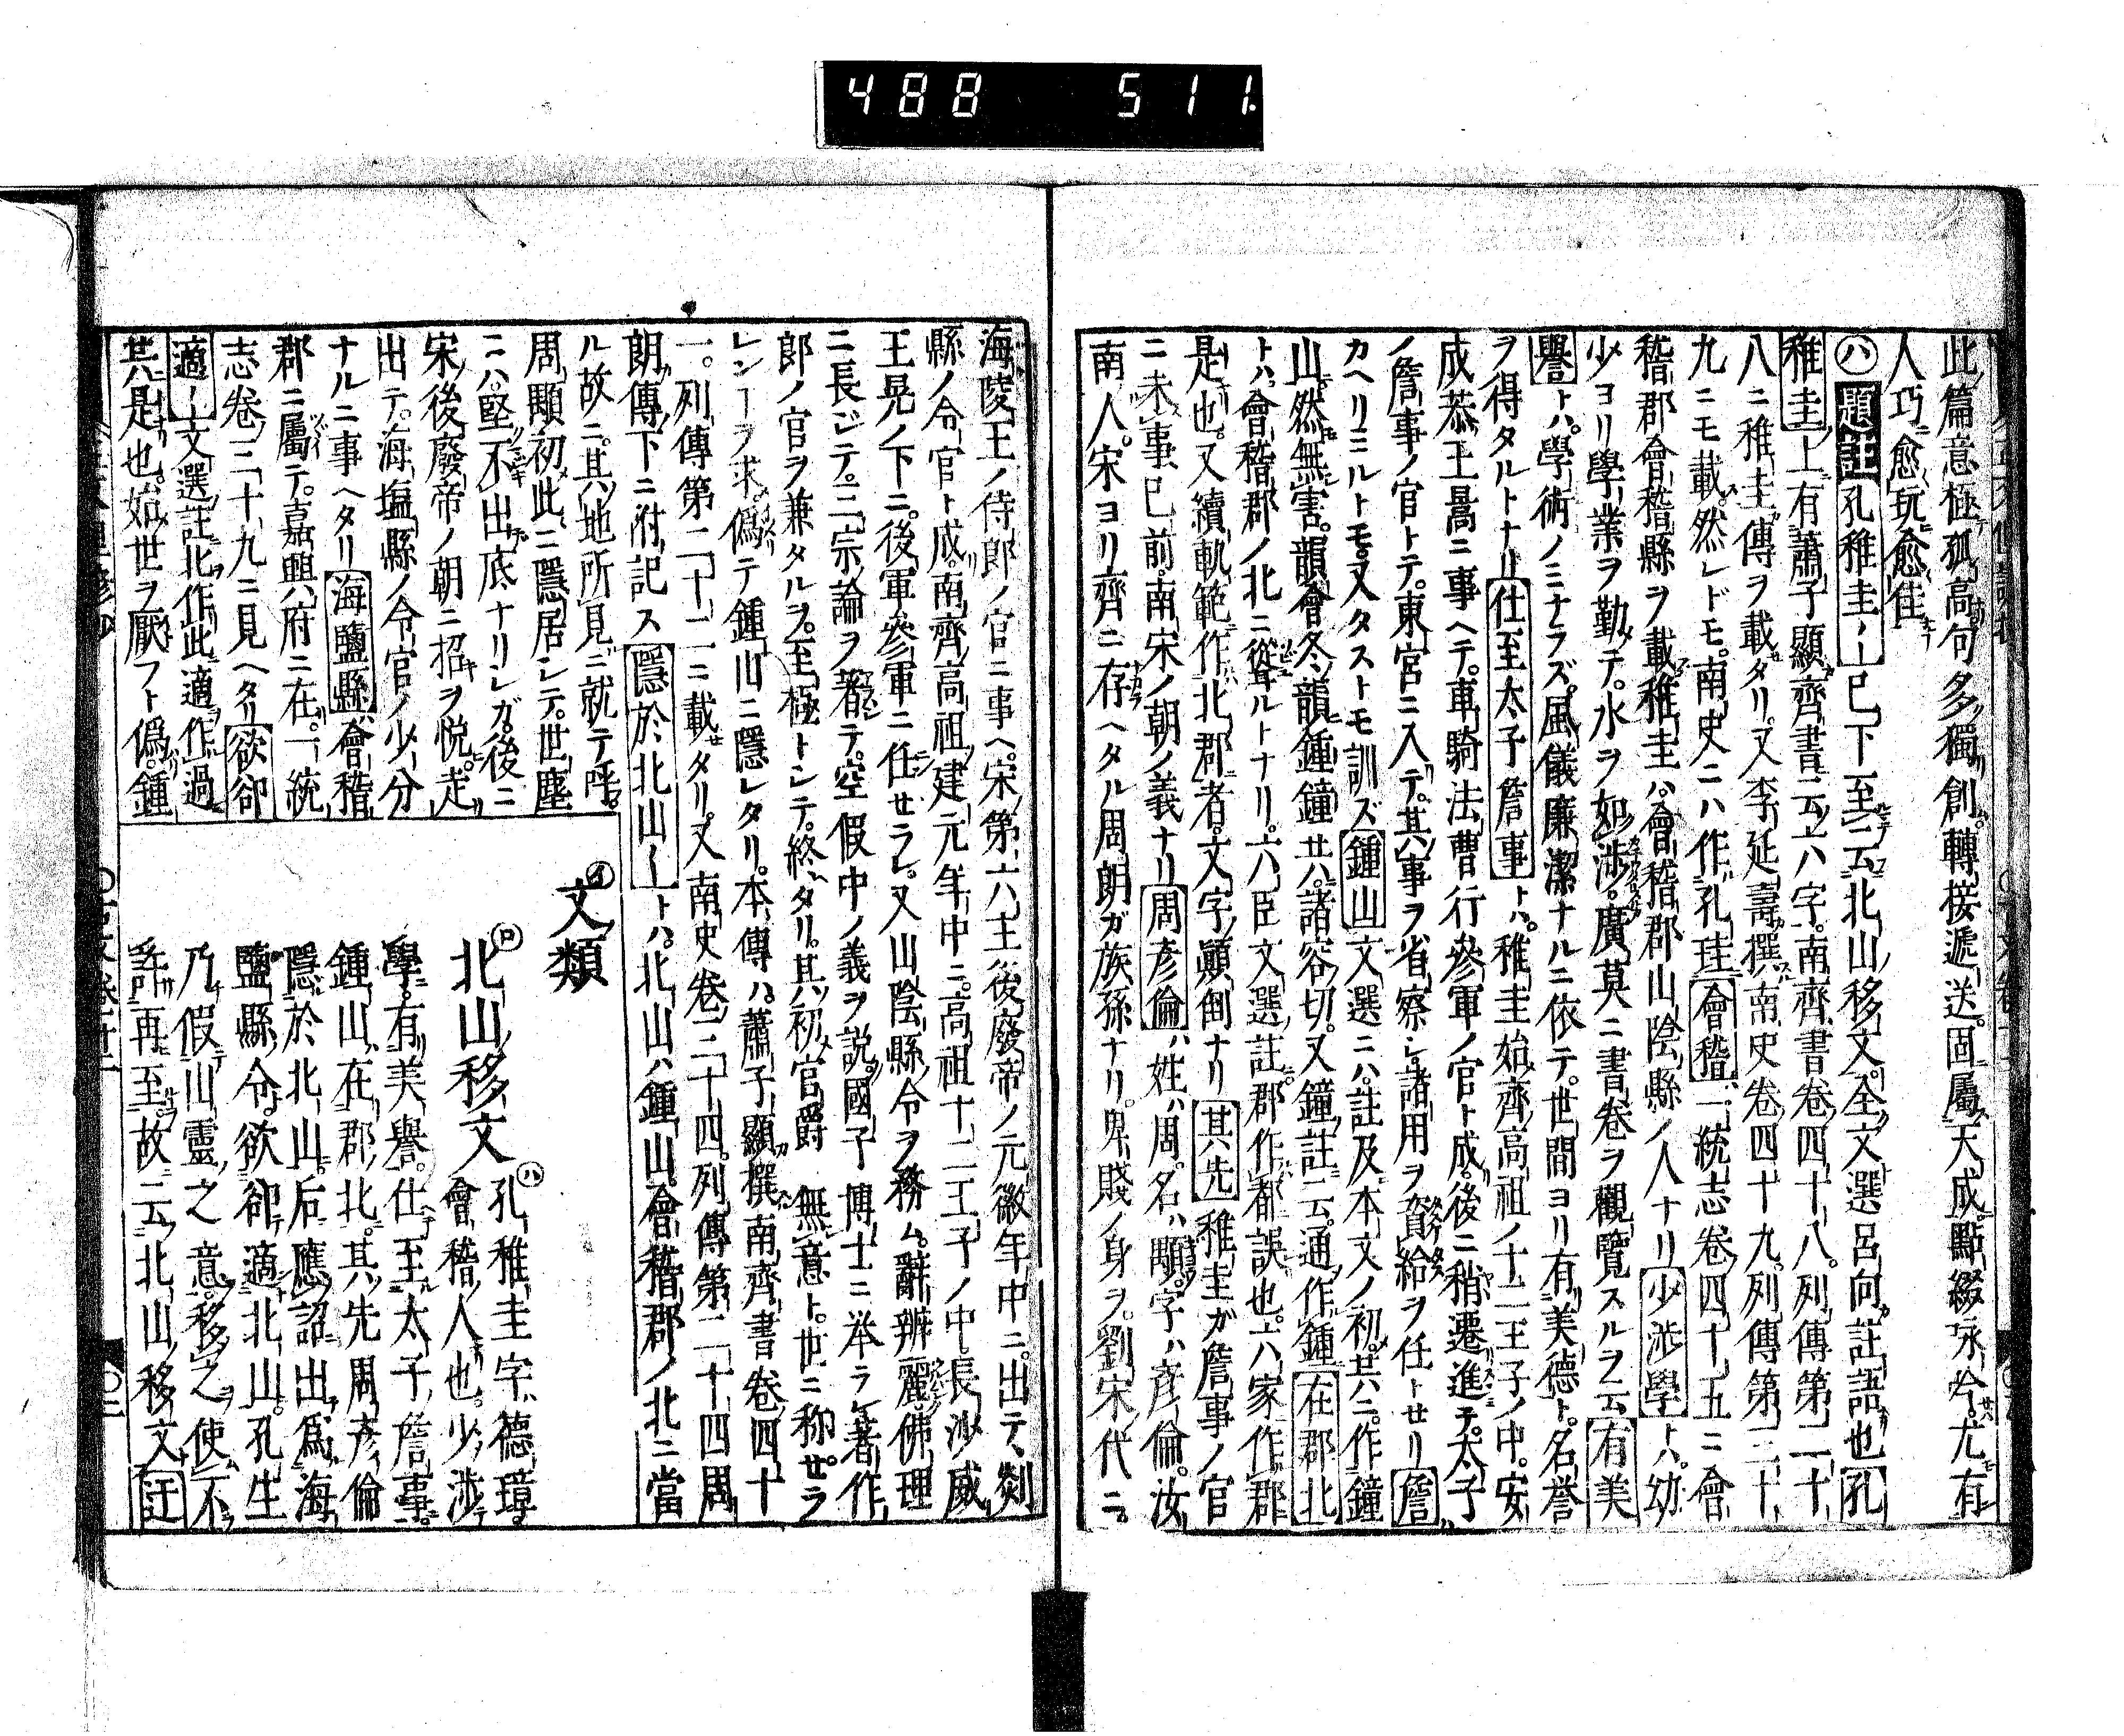 488 511.
此篇意極孤高句多獨創。轉接遞送。固屬天成點綴咏吟。尤有
人巧愈玩愈佳
ハ題註孔稚圭ー巳下至云北山移文。全文選呂向註語也孔
稚圭上有蕭子顯齊書云六ハ字。南齊書卷四十八。列傳第二十
八ニ稚圭傳ヲ載タリ。又李延壽撰南史卷四十九。列傳第三十
九ニモ載。然レドモ。南史ニハ作孔珪會稽一統志卷四十五ニ會
稽郡會稽縣ヲ載稚圭ハ。會稽郡山陰縣ノ人ナリ少涉學トハ。幼
少ヨリ學業ヲ勤テ。水ヲ如涉。廣莫ニ書卷ヲ觀覽スルヲ云有美
譽トハ。學術ノミナラズ。風儀廉潔ナルニ依テ。世間ヨリ有美德ト。名誉
ヲ得タルトナリ仕至太子詹事トハ。稚圭始齊高祖ノ十二王子ノ中。安
成恭王暠ニ事ヘテ。車騎法曹行參軍ノ官ト成。後ニ稍遷進テ。太子
ノ詹事ノ官トテ。東宮ニ入テ。其事ヲ省察シ。諸用ヲ賀給ヲ任トセリ詹
カヘリミルトモ。又タストモ訓ズ鍾山文選ニハ。註及本文ノ初。共ニ。作鐘
山。然無害。韻會冬韻鍾鐘共ハ。諸容切。又鐘註云。通作鍾在郡北
トハ。會稽郡ノ北ニ聳ルトナリ。六臣文選註。郡作都誤也。六家作郡
是也。又續軌範作北郡者。文字顚倒ナリ其先稚圭ガ詹事ノ官
ニ未事巳前南宋ノ朝ノ義ナリ周彦倫ハ姓ハ周。名ハ顒。字ハ彦倫。汝
南人。宋ヨリ齊ニ存ヘタル周朗ガ族孫ナリ。卑賤ノ身ヲ。劉宋代ニ。
海陵王ノ侍郎ノ官ニ事ヘ。宋第六主後廢帝ノ元徽年中ニ。出テ、剡
縣ノ令官ト成。南齊高祖建元年中ニ。高祖十二王子ノ中。長沙威
王晃ノ下ニ。後軍參軍ニ任セラレ。又山陰縣令ヲ務ム。辭辨麗佛理
ニ長ジテ。三宗論ヲ著テ。空假中ノ義ヲ説。國子博士ニ举ラレ著作
郎ノ官ヲ兼タルヲ。至極トシテ。終タリ。其初官爵無意ト。世ニ称せラ
レンーヲ求。偽テ鍾山ニ隱レタリ。本傳ハ。蕭子顯撰南齊書卷四十
一。列傳第二十二ニ載タリ。又南史卷三十四。列傳第二十四周
朗傳下ニ附記ス隱於北山ートハ。北山ハ鍾山。會稽郡ノ北ニ當
ル故ニ。其地所見ニ就テ呼。
周顒初此ニ隱居シテ。世塵
ニハ。堅不出底ナリシガ。後ニ
宋後廢帝ノ朝ニ招ヲ悦。走
出テ。海塩縣ノ令官ノ少分
ナルニ事ヘタリ海鹽縣會稽
郡ニ屬テ。嘉興府ニ在。一統
志卷三十九ニ見ヘタリ欲卻
適ー文選註北作此適作過
其是也。始世ヲ厭フト偽。鍾
イ文類
ロ北山移文
ハ孔稚圭字德璋。
會稽人也。少涉
學。有美譽。仕至太子詹事。
鍾山在郡北。其先周彦倫
隱於北山。后應詔出。爲海
鹽縣令。欲卻適北山。孔生
乃假山靈之意。移之。使不
許再至。故云北山移文註